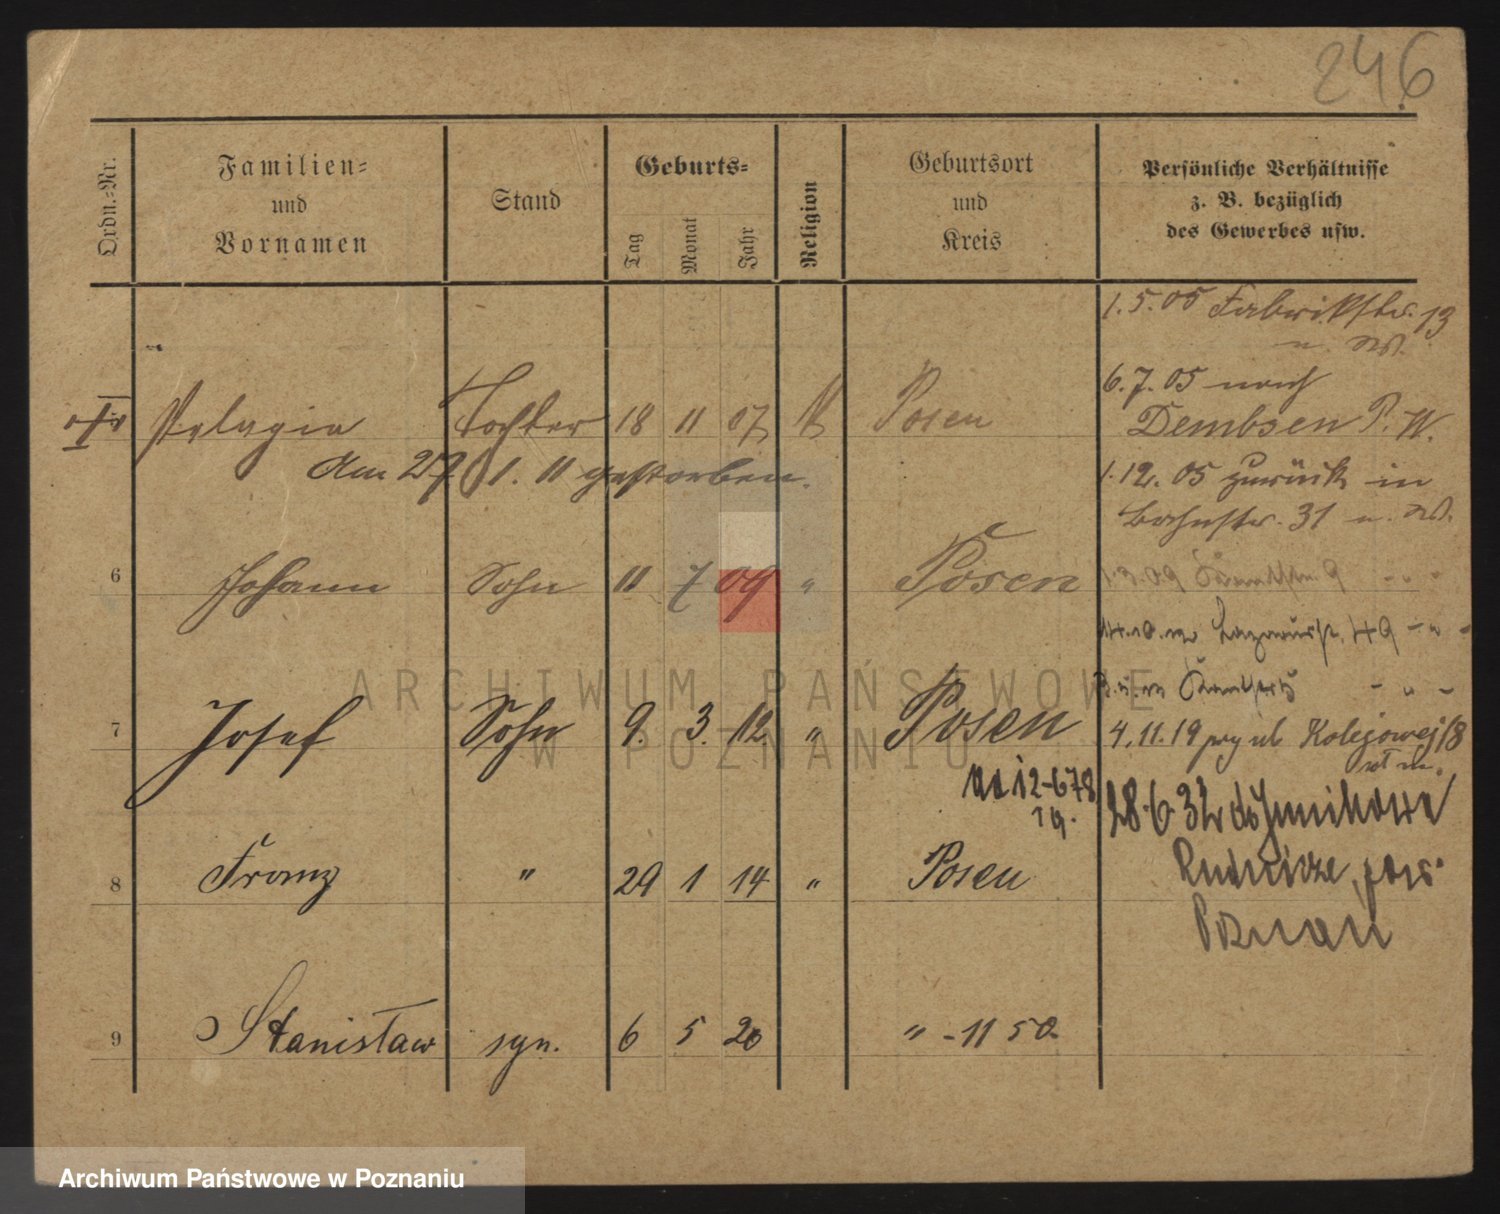 246
Ordn.-Nr.
Familien-
und
Vornamen
Stand
Geburts-
Tag
Monat
Jahr
Religion
Geburtsort
und
Kreis
Persönliche Verhältnisse
z. B. bezüglich
des Gewerbes usw.
1.5.05 Fabrikstr. 13
6.7.05 nach
Pelagia Tochter 18 11 07 Posen
Dembsen P. W.
am 27. 1. 11 gestorben.
1.12.05 zurück in
Bahnstr. 31 u.
6 Johann Sohn 11 7 09 " Posen
1.3.09 9
49
7 Josef Sohn 9. 3. 12 " Posen
4.11.19 ul Kolejowej 18
12-678
19.
28.6.32
8 Franz " 29 1 14 " Posen
Rudnicze, pow.
Poznań
9 Stanisław syn. 6 5 20 " - 11 50.
ARCHIWUM PAŃSTWOWE
W POZNANIU
Archiwum Państwowe w Poznaniu